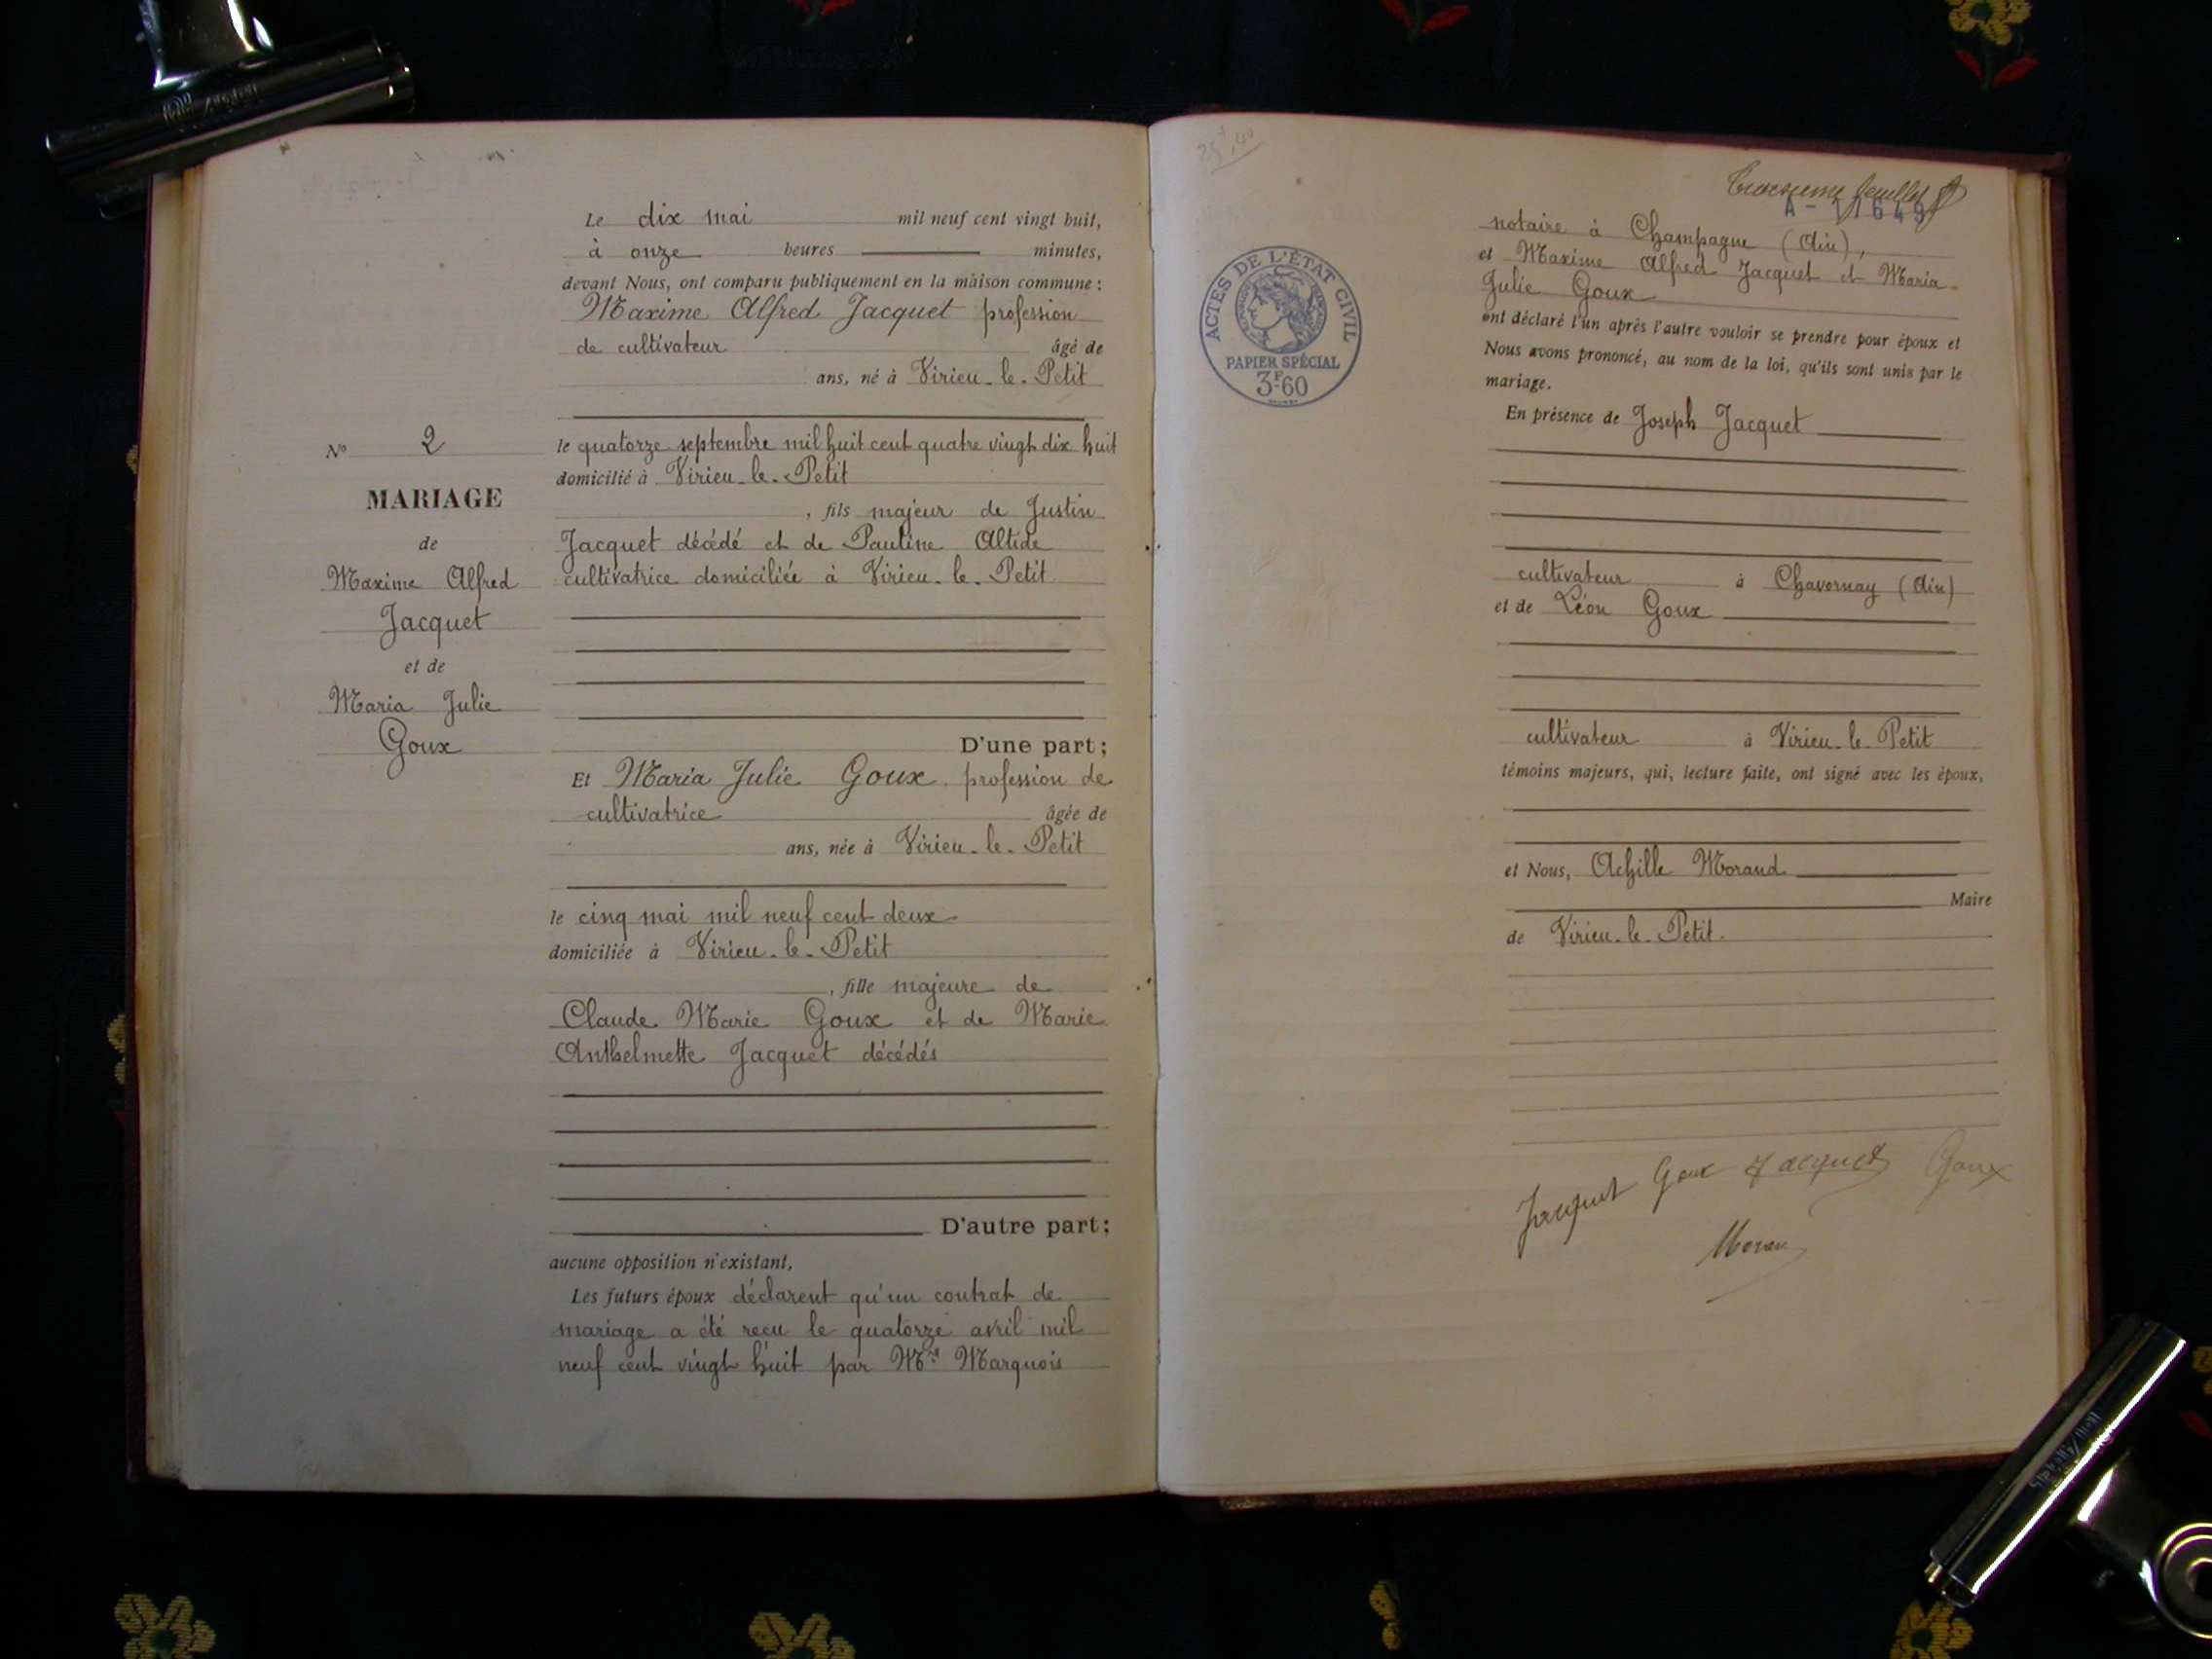 Le dix mai mil neuf cent vingt huit,
à onze heures minutes,
devant Nous, ont comparu publiquement en la maison commune :
Maxime Alfred Jacquet profession
de cultivateur âgé de
ans, né à Virieu-le-Petit
le quatorze septembre mil huit cent quatre vingt dix huit
domicilié à Virieu-le-Petit
, fils majeur de Justin
Jacquet décédé et de Pauline Altide
cultivatrice domiciliée à Virieu-le-Petit
D'une part ;
Et Maria Julie Goux profession de
cultivatrice âgée de
ans, née à Virieu-le-Petit
le cinq mai mil neuf cent deux
domiciliée à Virieu-le-Petit
, fille majeure de
Claude Marie Goux et de Marie
Anthelmette Jacquet décédés
D'autre part ;
aucune opposition n'existant,
Les futurs époux déclarent qu'un contrat de
mariage a été reçu le quatorze avril mil
neuf cent vingt huit par Me Marquois
No 2
MARIAGE
de
Maxime Alfred
Jacquet
et de
Maria Julie
Goux
Troisième feuillet
A-11649
ACTES DE L'ÉTAT CIVIL
PAPIER SPÉCIAL
3F60
notaire à Champagne (Ain),
et Maxime Alfred Jacquet et Maria
Julie Goux
ont déclaré l'un après l'autre vouloir se prendre pour époux et
Nous avons prononcé, au nom de la loi, qu'ils sont unis par le
mariage.
En présence de Joseph Jacquet
cultivateur à Chavornay (Ain)
et de Léon Goux
cultivateur à Virieu-le-Petit
témoins majeurs, qui, lecture faite, ont signé avec les époux,
et Nous, Achille Morand
Maire
de Virieu-le-Petit.
Jacquet Goux Jacquet Goux